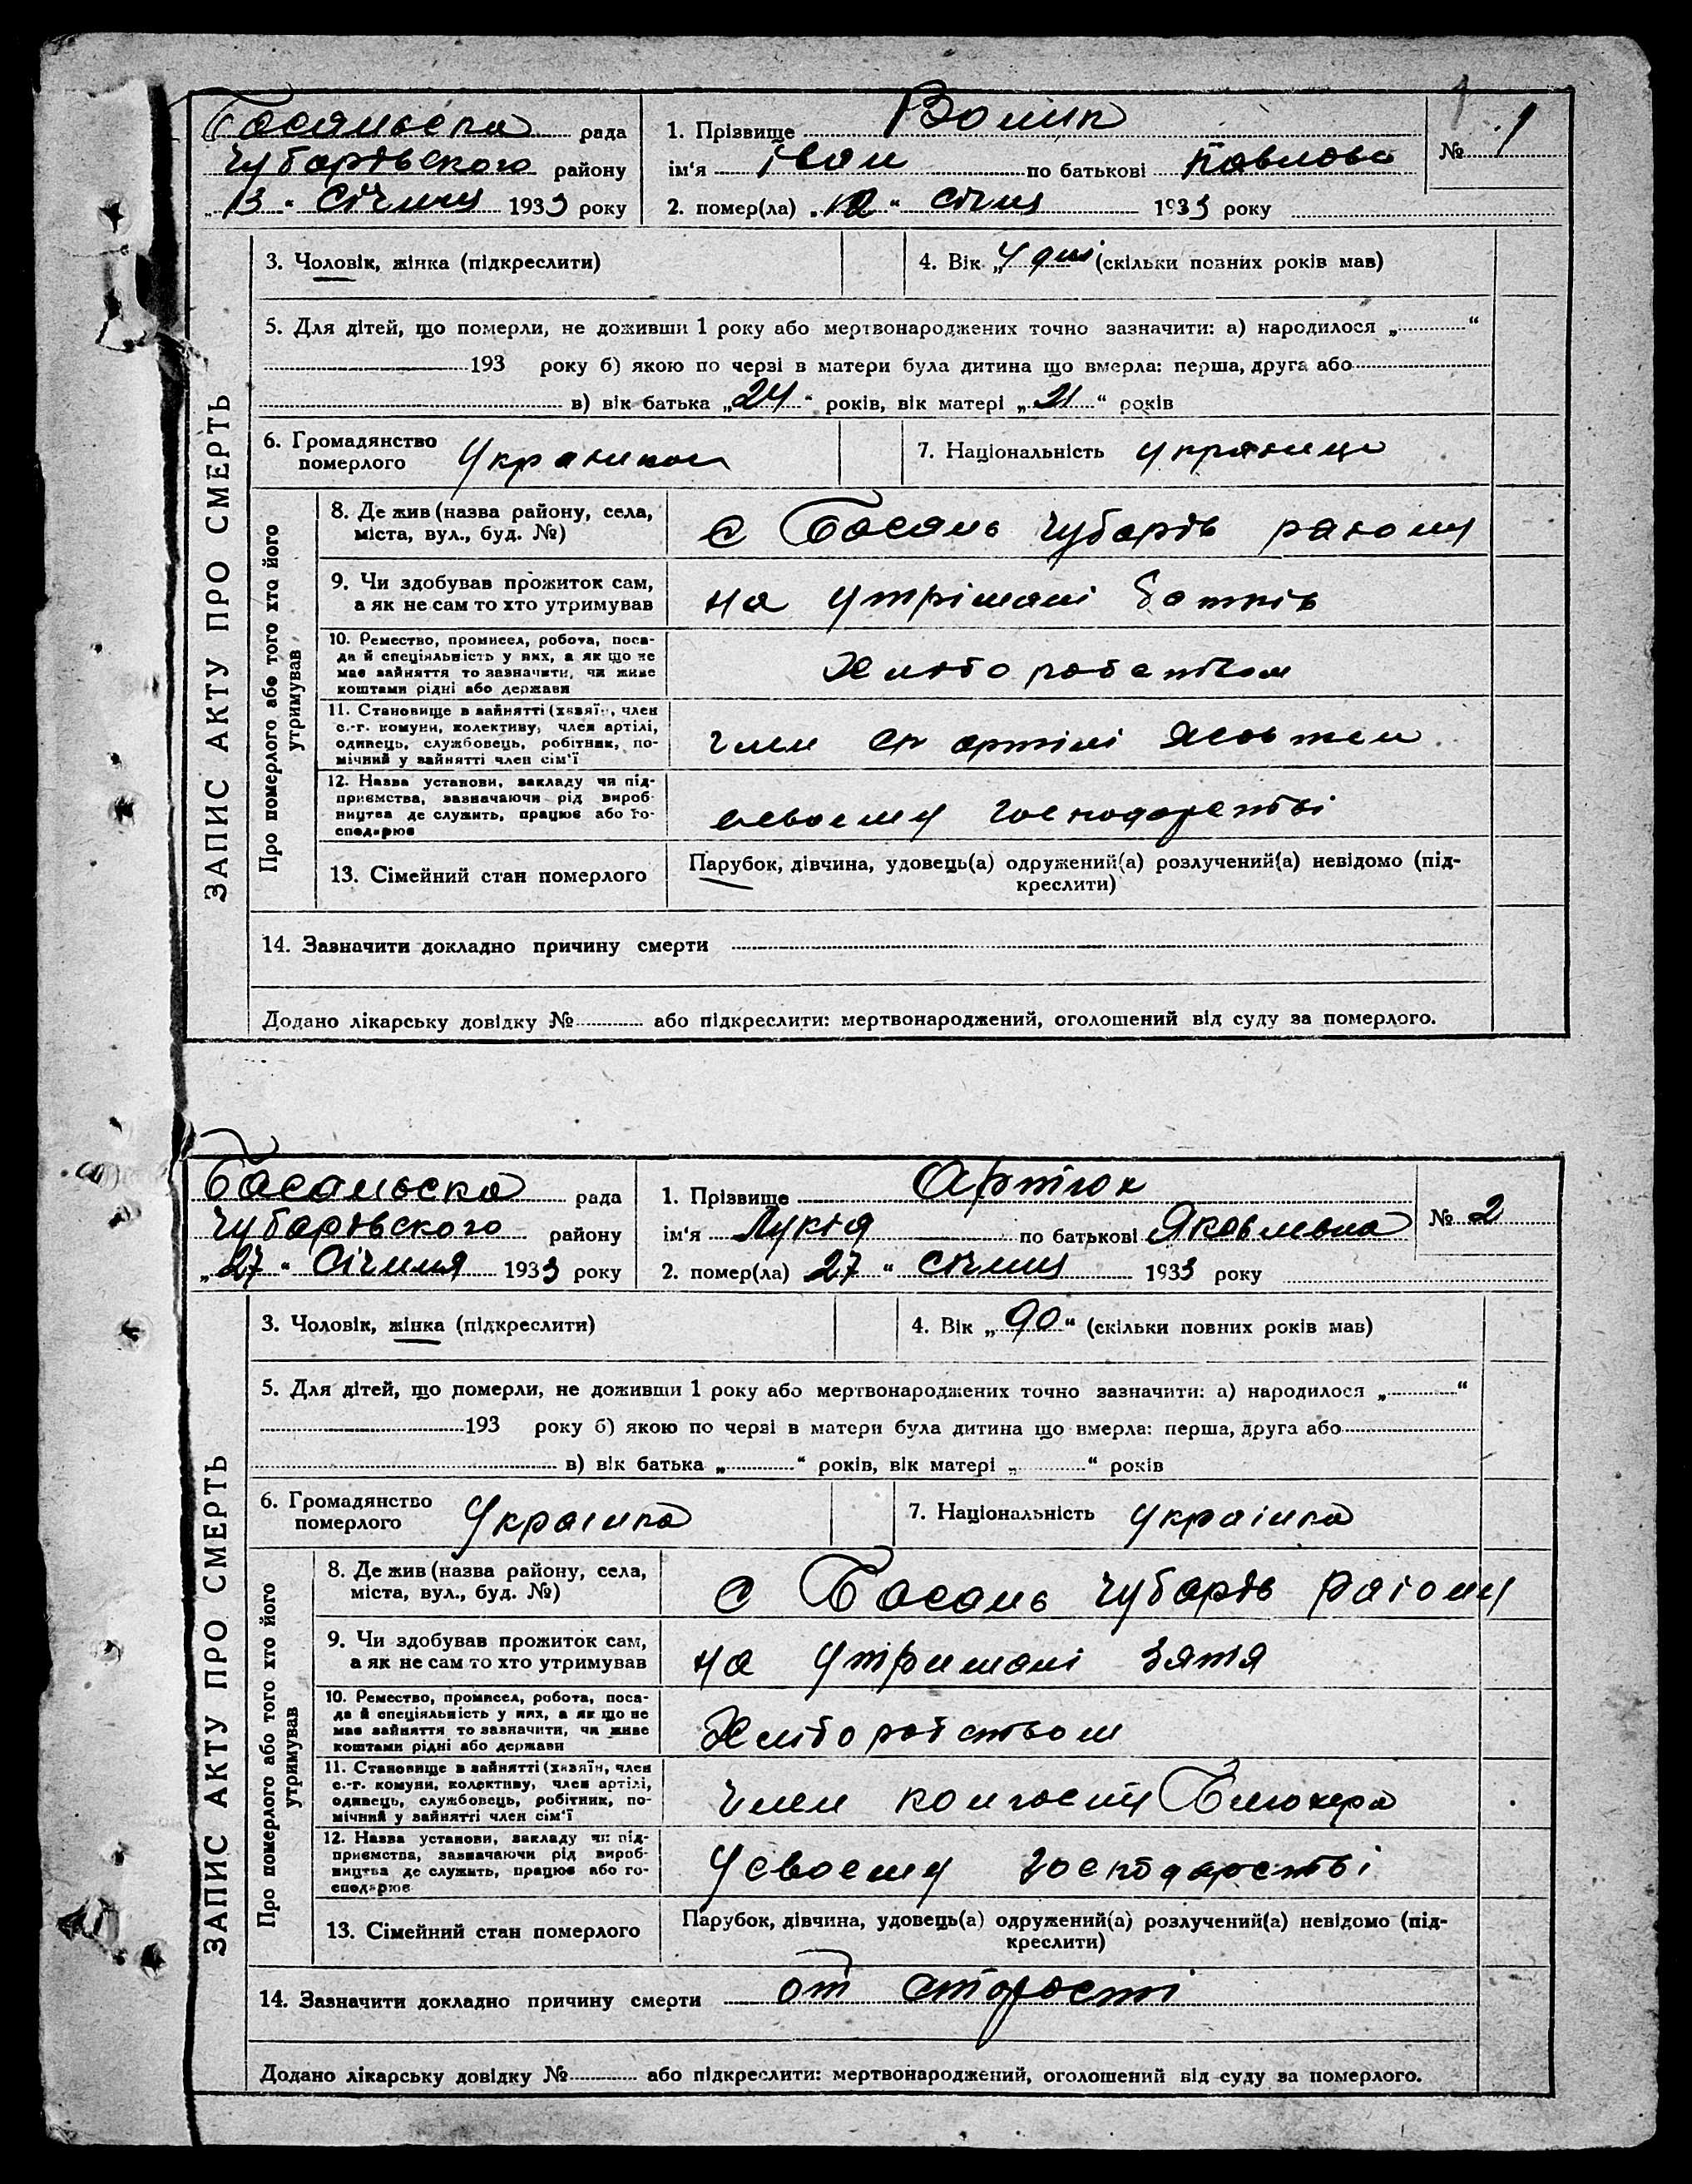 Басанська рада
Чубарівського району
„13“ Січня 1933 року
1. Прізвище Волик
ім'я Іван по батькові Павлов
2. помер(ла) „12“ січня 1933 року
№ 1
ЗАПИС АКТУ ПРО СМЕРТЬ
3. Чоловік, жінка (підкреслити)
4. Вік „4 дні (скільки повних років мав)
5. Для дітей, що померли, не доживши 1 року або мертвонароджених точно зазначити: а) народилося „ “
193 року б) якою по черзі в матери була дитина що вмерла: перша, друга або
в) вік батька „24“ років, вік матері „21“ років
6. Громадянство
померлого
7. Національність
Про померлого або того хто його
утримував
8. Де жив (назва району, села,
міста, вул., буд. №)
с Басань Чубарів району
9. Чи здобував прожиток сам,
а як не сам то хто утримував
на утрімані батків
10. Ремество, промисел, робота, поса-
да й спеціяльність у них, а як що не
має зайняття то зазначити, чи живе
коштами рідні або держави
11. Становище в зайнятті (хазяїн, член
с.-г. комуни, колективу, член артілі,
одинець, службовець, робітник, по-
мічний у зайнятті член сім'ї
член ср артілі Жовтен
12. Назва установи, закладу чи під-
приємства, зазначаючи рід вироб-
ництва де служить, працює або го-
сподарює
всвоему господарстві
13. Сімейний стан померлого
Парубок, дівчина, удовець(а) одружений(а) розлучений(а) невідомо (під-
креслити)
14. Зазначити докладно причину смерти
Додано лікарську довідку № або підкреслити: мертвонароджений, оголошений від суду за померлого.
Басанська рада
Чубарівського району
„27“ Січня 1933 року
1. Прізвище Артюх
ім'я Лукія по батькові Яковлівна
2. помер(ла) 27 “ січня 1933 року
№ 2
ЗАПИС АКТУ ПРО СМЕРТЬ
3. Чоловік, жінка (підкреслити)
4. Вік „90“ (скільки повних років мав)
5. Для дітей, що померли, не доживши 1 року або мертвонароджених точно зазначити: а) народилося „ “
193 року б) якою по черзі в матери була дитина що вмерла: перша, друга або
в) вік батька „ “ років, вік матері „ “ років
6. Громадянство
померлого
Украинка
7. Національність Украінка
Про померлого або того хто його
утримував
8. Де жив (назва району, села,
міста, вул., буд. №)
с Басань Чубарів раіону
9. Чи здобував прожиток сам,
а як не сам то хто утримував
на утримані зятя
10. Ремество, промисел, робота, поса-
да й спеціяльність у них, а як що не
має зайняття то зазначити, чи живе
коштами рідні або держави
Хліборобством
11. Становище в зайнятті (хазяїн, член
с.-г. комуни, колективу, член артілі,
одинець, службовець, робітник, по-
мічний у зайнятті член сім'ї
член колгоспу Блюхера
12. Назва установи, закладу чи під-
приємства, зазначаючи рід вироб-
ництва де служить, працює або го-
сподарює
У своему господарстві
13. Сімейний стан померлого
Парубок, дівчина, удовець(а) одружений(а) розлучений(а) невідомо (під-
креслити)
14. Зазначити докладно причину смерти от старості
Додано лікарську довідку № або підкреслити: мертвонароджений, оголошений від суду за померлого.